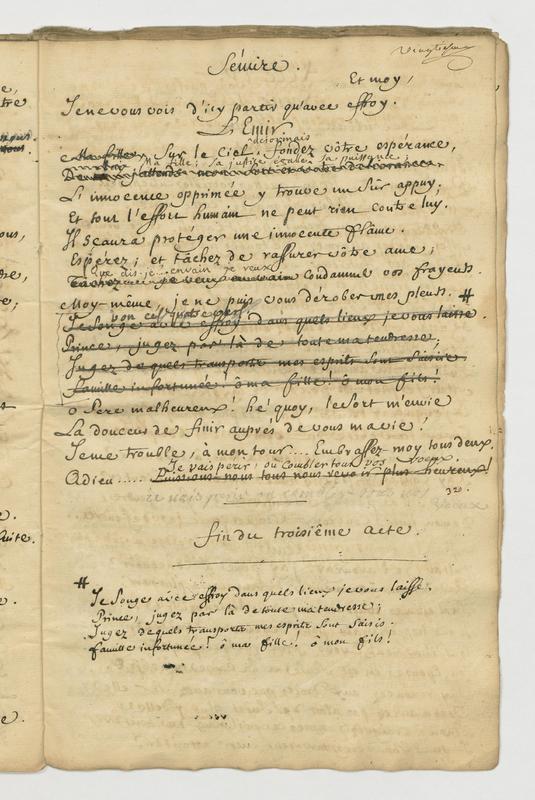 Sémire.
Et moy,
Je ne vous vois d'icy partir qu'avec effroy.
L'Emir.
désormais
Sur le Ciel, fondez vôtre espérance,
Ma fille; sa justice égale sa puissance;
L'innocence opprimée y trouve un sûr appuy;
Et tout l'effort humain ne peut rien contre luy.
Il sçaura protéger une innocente flâme.
Espérez; et tâchez de rassurer vôtre ame;
Que dis-je? envain je veux
condamner vos frayeurs.
Moy-même, je ne puis vous dérober mes pleurs. #
bon ces quatre vers
Je songe avec effroy dans quels lieux je vous laisse.
Prince, jugez par là de toute ma tendresse;
Jugez de quels transports mes esprits sont saisis
famille infortunée! ô ma fille! ô mon fils!
ô Père malheureux! hé quoy, le sort m'envie
La douceur de finir auprès de vous ma vie!
Je me trouble, à mon tour.... Embrassez-moy tous deux.
Je vais périr, ou combler tous vos voeux.
Adieu..... Puissions-nous tous nous revoir plus heureux!
320.
fin du troisième acte.
# Je songe avec effroy dans quels lieux je vous laisse.
Prince, jugez par là de toute ma tendresse;
Jugez de quels transports mes esprits sont saisis.
famille infortunée! ô ma fille! ô mon fils!